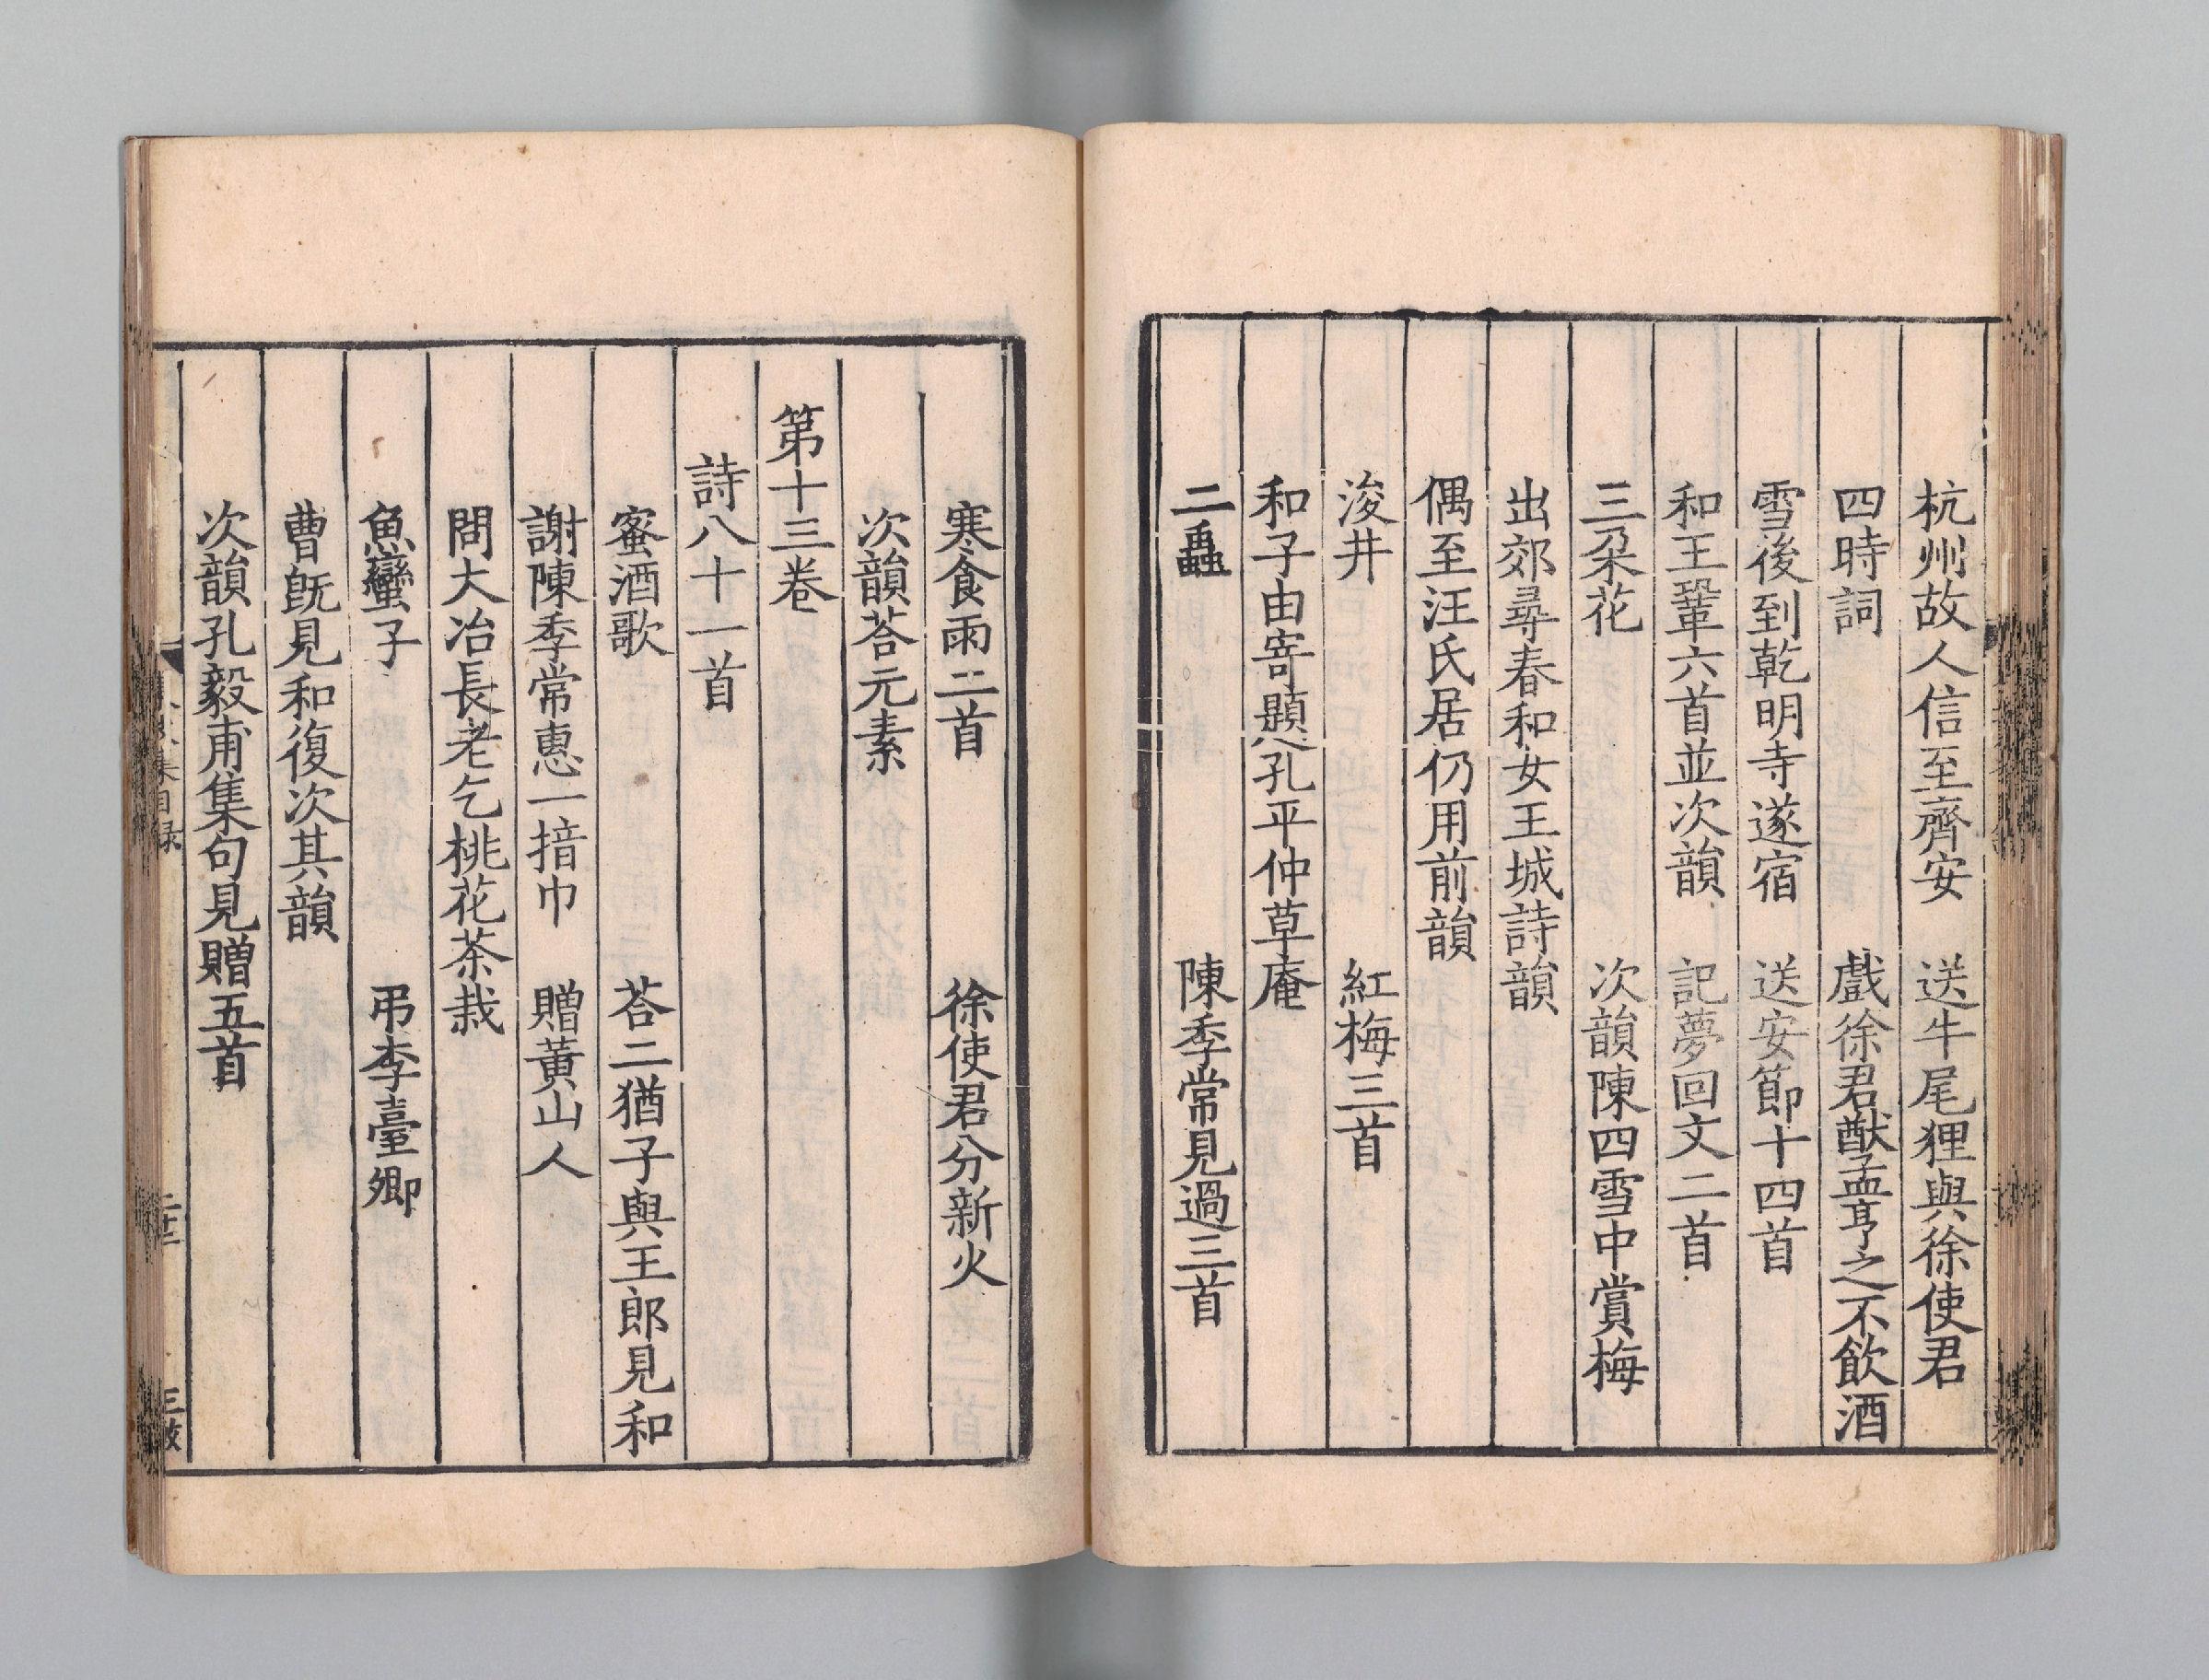 杭州故人信至齊安　送牛尾狸與徐使君
四時詞　戲徐君猷孟亨之不飲酒
雪後到乾明寺遂宿　送安節十四首
和王鞏六首並次韻　記夢回文二首
三朶花　次韻陳四雪中賞梅
出郊尋春和女王城詩韻
偶至汪氏居仍用前韻
浚井　紅梅三首
和子由寄題孔平仲草庵
二蟲　陳季常見過三首
寒食雨二首　徐使君分新火
次韻荅元素
第十三卷
詩八十一首
蜜酒歌　荅二猶子與王郎見和
謝陳季常惠一揞巾　贈黃山人
問大冶長老乞桃花茶栽
魚蠻子　弔李臺卿
曹旣見和復次其韻
次韻孔毅甫集句見贈五首